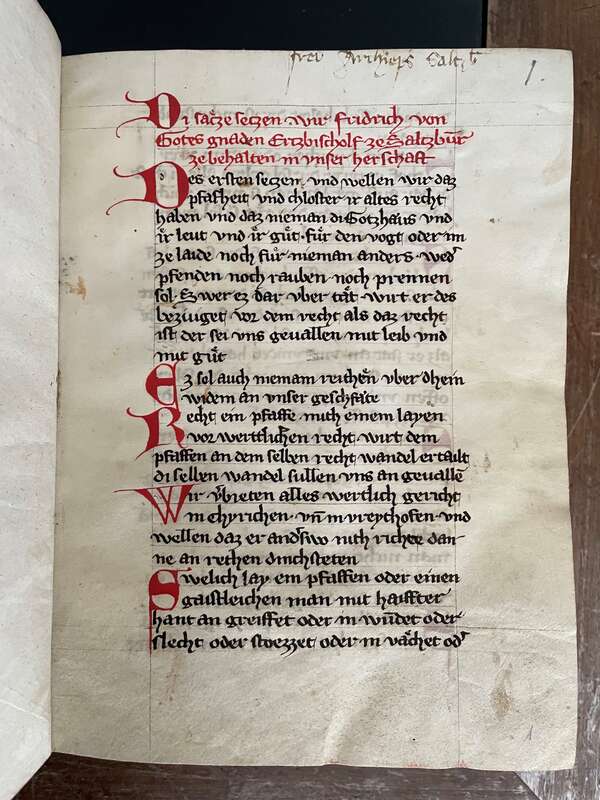 1.
Di saͤtze setzen wir fridrich von
Gotes gnaden Ertzbischolf ze Saltzbur̄
ze behalten in vnser herschaft
Des ersten setzen vnd wellen wir daz
pfafheit vnd chloster ir altes recht
haben vnd daz nieman di Gotzhaus vnd
ir leut vnd ir guͤt fuͤr den vogt oder im
ze laide noch fuͤr nieman anders wedʼ
pfenden noch rauben noch prennen
sol. Swer ez dar vber taͤt wirt er des
bezivget vor dem recht als daz recht
ist der sei vns geuallen mit leib vnd
mit guͤt
Ez sol auch niemam reithen vber dhein
widem an vnser geschaͤfte
Recht ein pfaffe mith einem layen
vor werttlichen recht wirt dem
pfaffen an dem selben recht wandel ertailt
di selben wandel sullen vns an geualle̅
Wir vʼbieten alles wertlich gericht
in chyrichen. vn̄ in vreythofen. vnd
wellen daz er andʼswo nith richte dan-
ne an rechten dinchsteten
Swelich lay ein pfaffen oder einen
gaistleichen man mit haiffter
hant an greiffet oder in wūdet oder
slecht oder stoezzet oder in vaͤchet odʼ
1